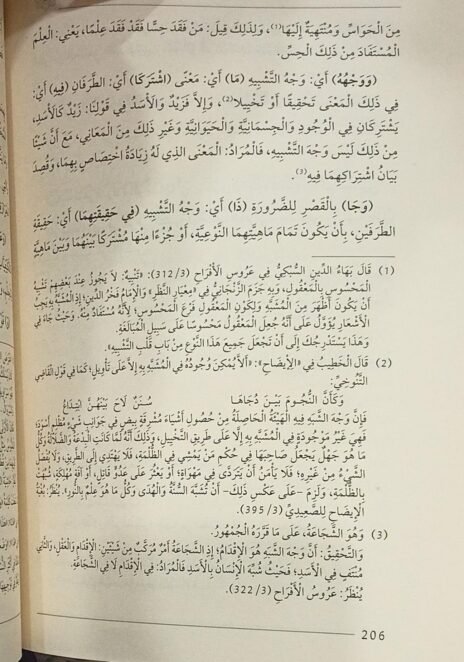 مِنَ الْحَوَاسِّ وَمُنْتَهِيَةٌ إِلَيْهَا(1)، وَلِذَلِكَ قِيلَ: مَنْ فَقَدَ حِسًّا فَقَدْ فَقَدَ عِلْمًا، يَعْنِي: الْعِلْمَ
الْمُسْتَفَادَ مِنْ ذَلِكَ الْحِسِّ.
(وَوَجْهُهُ) أَيْ: وَجْهُ التَّشْبِيهِ (مَا) أَيْ: مَعْنًى (اشْتَرَكَا) أَيْ: الطَّرَفَانِ (فِيهِ) أَيْ:
فِي ذَلِكَ الْمَعْنَى تَحْقِيقًا أَوْ تَخْيِيلًا(2)، وَإِلَّا فَزَيْدٌ وَالْأَسَدُ فِي قَوْلِنَا: زَيْدٌ كَالْأَسَدِ،
يَشْتَرِكَانِ فِي الْوُجُودِ وَالْجِسْمَانِيَّةِ وَالْحَيَوَانِيَّةِ وَغَيْرِ ذَلِكَ مِنَ الْمَعَانِي، مَعَ أَنَّ شَيْئًا
مِنْ ذَلِكَ لَيْسَ وَجْهَ التَّشْبِيهِ، فَالْمُرَادُ: الْمَعْنَى الَّذِي لَهُ زِيَادَةُ اخْتِصَاصٍ بِهِمَا، وَقُصِدَ
بَيَانُ اشْتِرَاكِهِمَا فِيهِ(3).
(وَجَا) بِالْقَصْرِ لِلضَّرُورَةِ (ذَا) أَيْ: وَجْهُ التَّشْبِيهِ (فِي حَقِيقَتِهِمَا) أَيْ: حَقِيقَةِ
الطَّرَفَيْنِ، بِأَنْ يَكُونَ تَمَامَ مَاهِيَّتِهِمَا النَّوْعِيَّةِ، أَوْ جُزْءًا مِنْهَا مُشْتَرَكًا بَيْنَهُمَا وَبَيْنَ مَاهِيَّةٍ
(1) قَالَ بَهَاءُ الدِّينِ السُّبْكِيُّ فِي عَرُوسِ الْأَفْرَاحِ (3/312): «تَنْبِيهٌ: لَا يَجُوزُ عِنْدَ بَعْضِهِمْ تَشْبِيهُ
الْمَحْسُوسِ بِالْمَعْقُولِ، وَبِهِ جَزَمَ الزَّنْجَانِيُّ فِي «مِعْيَارِ النُّظَّارِ» وَالْإِمَامُ فَخْرُ الدِّينِ؛ إِذِ الْمُشَبَّهُ بِهِ يَجِبُ
أَنْ يَكُونَ أَظْهَرَ مِنَ الْمُشَبَّهِ وَلِكَوْنِ الْمَعْقُولِ فَرْعَ الْمَحْسُوسِ؛ لِأَنَّهُ مُسْتَفَادٌ مِنْهُ. وَحَيْثُ جَاءَ فِي
الْأَشْعَارِ يُؤَوَّلُ عَلَى أَنَّهُ جُعِلَ الْمَعْقُولُ مَحْسُوسًا عَلَى سَبِيلِ الْمُبَالَغَةِ.
وَهَذَا يَسْتَدْرِجُكَ إِلَى أَنْ تَجْعَلَ جَمِيعَ هَذَا النَّوْعِ مِنْ بَابِ قَلْبِ التَّشْبِيهِ».
(2) قَالَ الْخَطِيبُ فِي «الْإِيضَاحِ»: «أَلَّا يُمْكِنَ وُجُودُهُ فِي الْمُشَبَّهِ بِهِ إِلَّا عَلَى تَأْوِيلٍ؛ كَمَا فِي قَوْلِ الْقَاضِي
التَّنُوخِيِّ:
وَكَأَنَّ النُّجُومَ بَيْنَ دُجَاهَا سُنَنٌ لَاحَ بَيْنَهُنَّ ابْتِدَاعُ
فَإِنَّ وَجْهَ الشَّبَهِ فِيهِ الْهَيْئَةُ الْحَاصِلَةُ مِنْ حُصُولِ أَشْيَاءَ مُشْرِقَةٍ بِيضٍ فِي جَوَانِبِ شَيْءٍ مُظْلِمٍ أَسْوَدَ؛
فَهِيَ غَيْرُ مَوْجُودَةٍ فِي الْمُشَبَّهِ بِهِ إِلَّا عَلَى طَرِيقِ التَّخْيِيلِ، وَذَلِكَ أَنَّهُ لَمَّا كَانَتِ الْبِدْعَةُ وَالضَّلَالَةُ وَكُلُّ
مَا هُوَ جَهْلٌ يَجْعَلُ صَاحِبَهَا فِي حُكْمِ مَنْ يَمْشِي فِي الظُّلْمَةِ، فَلَا يَهْتَدِي إِلَى الطَّرِيقِ، وَلَا يَفْصِلُ
الشَّيْءَ مِنْ غَيْرِهِ؛ فَلَا يَأْمَنُ أَنْ يَتَرَدَّى فِي مَهْوَاةٍ؛ أَوْ يَعْثُرَ عَلَى عَدُوٍّ قَاتِلٍ، أَوْ آفَةٍ مُهْلِكَةٍ؛ شُبِّهَتْ
بِالظُّلْمَةِ، وَلَزِمَ -عَلَى عَكْسِ ذَلِكَ- أَنْ تُشَبَّهَ السُّنَّةُ وَالْهُدَى وَكُلُّ مَا هُوَ عِلْمٌ بِالنُّورِ». يُنْظَرُ: بُغْيَةُ
الْإِيضَاحِ لِلصَّعِيدِيِّ (3/395).
(3) وَهُوَ الشَّجَاعَةُ، عَلَى مَا قَرَّرَهُ الْجُمْهُورُ.
وَالتَّحْقِيقُ: أَنَّ وَجْهَ الشَّبَهِ هُوَ الْإِقْدَامُ؛ إِذِ الشَّجَاعَةُ أَمْرٌ مُرَكَّبٌ مِنْ شَيْئَيْنِ: الْإِقْدَامِ وَالْعَقْلِ، وَالثَّانِي
مُنْتَفٍ فِي الْأَسَدِ؛ فَحَيْثُ شُبِّهَ الْإِنْسَانُ بِالْأَسَدِ فَالْمُرَادُ: فِي الْإِقْدَامِ لَا فِي الشَّجَاعَةِ.
يُنْظَرُ: عَرُوسُ الْأَفْرَاحِ (3/322).
206